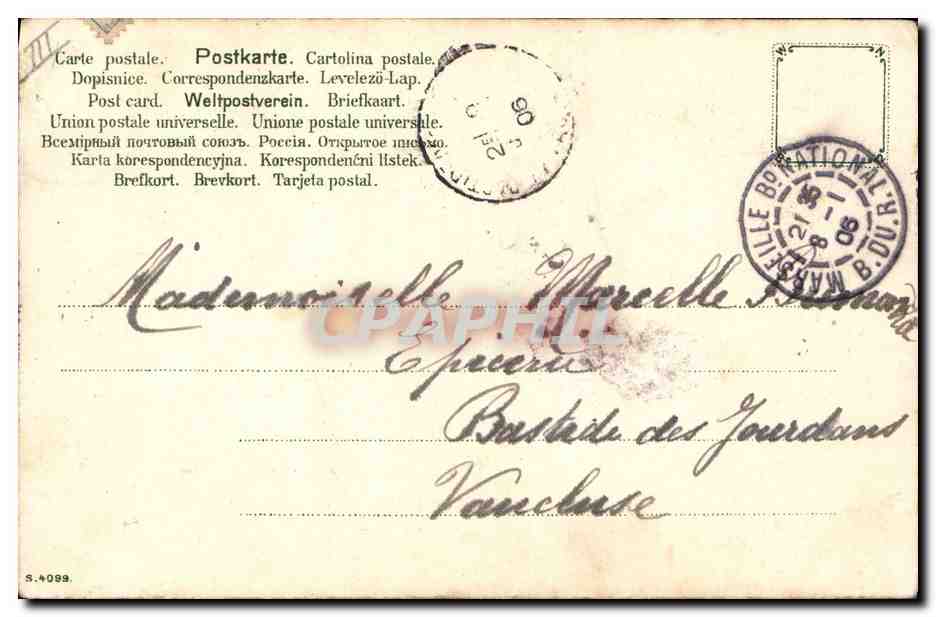 III
Carte postale. Postkarte. Cartolina postale.
Dopisnice. Correspondenzkarte. Levelező-Lap.
Post card. Weltpostverein. Briefkaart.
Union postale universelle. Unione postale universale.
Всемірный почтовый союзъ. Россія. Открытое письмо.
Karta korespondencyjna. Korespondenčni listek.
Brefkort. Brevkort. Tarjeta postal.
MARSEILLE Bd NATIONAL B. DU. R.
8 - 1
06
06
Mademoiselle Marcelle
CPAPHIL
Epicerie
Bastide des Jourdans
Vaucluse
S.4099.